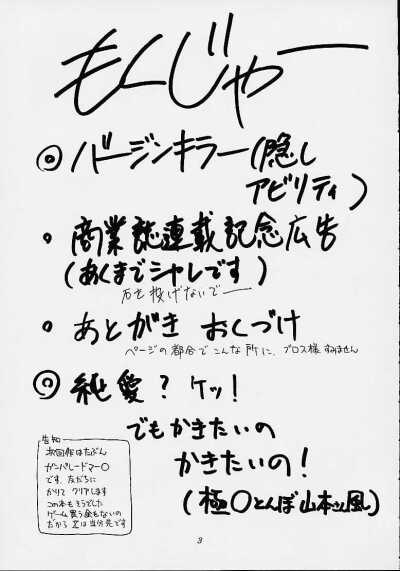 もくじゃー
◎ バージンキラー(隠し
アビリティ)
・ 商業誌連載記念広告
(あくまでシャレです)
石を投げないでー
・ あとがき おくづけ
ページの都合でこんな所に、ブロス様すみません
◎ 純愛?ケッ!
でもかきたいの
かきたいの!
(極○とんぼ山本さん風)
告知
次回作はたぶん
ガンパレードマー○
です、友だちに
かりて クリアします
この本もそうでした
ゲーム買う金もないの
だから 足は当分先です
3